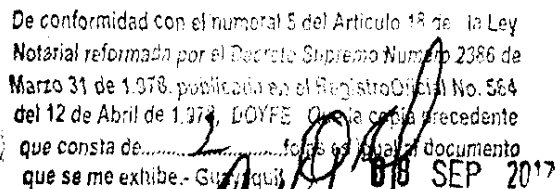 De conformidad con el numeral 5 del Articulo 18 de la Ley
Notarial reformada por el Decreto Supremo Numero 2386 de
Marzo 31 de 1.978. publicada en el Registro Oficial No. 564
del 12 de Abril de 1.978, DOY FE Que la copia precedente
que consta de...................fojas es igual al documento
que se me exhibe.- Guayaquil, 08 SEP 2017